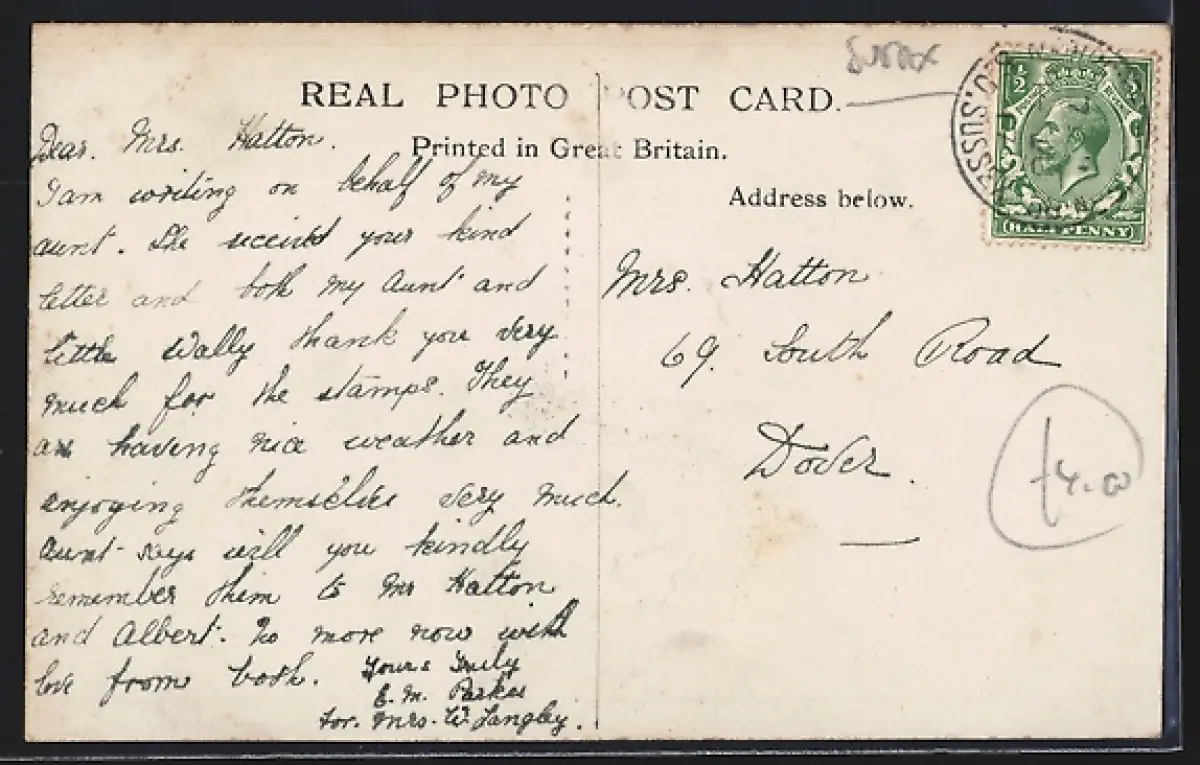 Sussex
REAL PHOTO POST CARD.
Printed in Great Britain.
Address below.
½ ½
HALFPENNY
SUSSEX
Dear. Mrs. Hatton.
I am writing on behalf of my
aunt. She received your kind
letter and both my Aunt and
little Wally thank you very
much for the stamps. They
are having nice weather and
enjoying themselves very much.
Aunt says will you kindly
remember them to Mr Hatton
and Albert. No more now with
love from both. Yours Truly
E. M. Parker
for. Mrs. W. Langley.
Mrs. Hatton
69. South Road
Dover.
£4.00